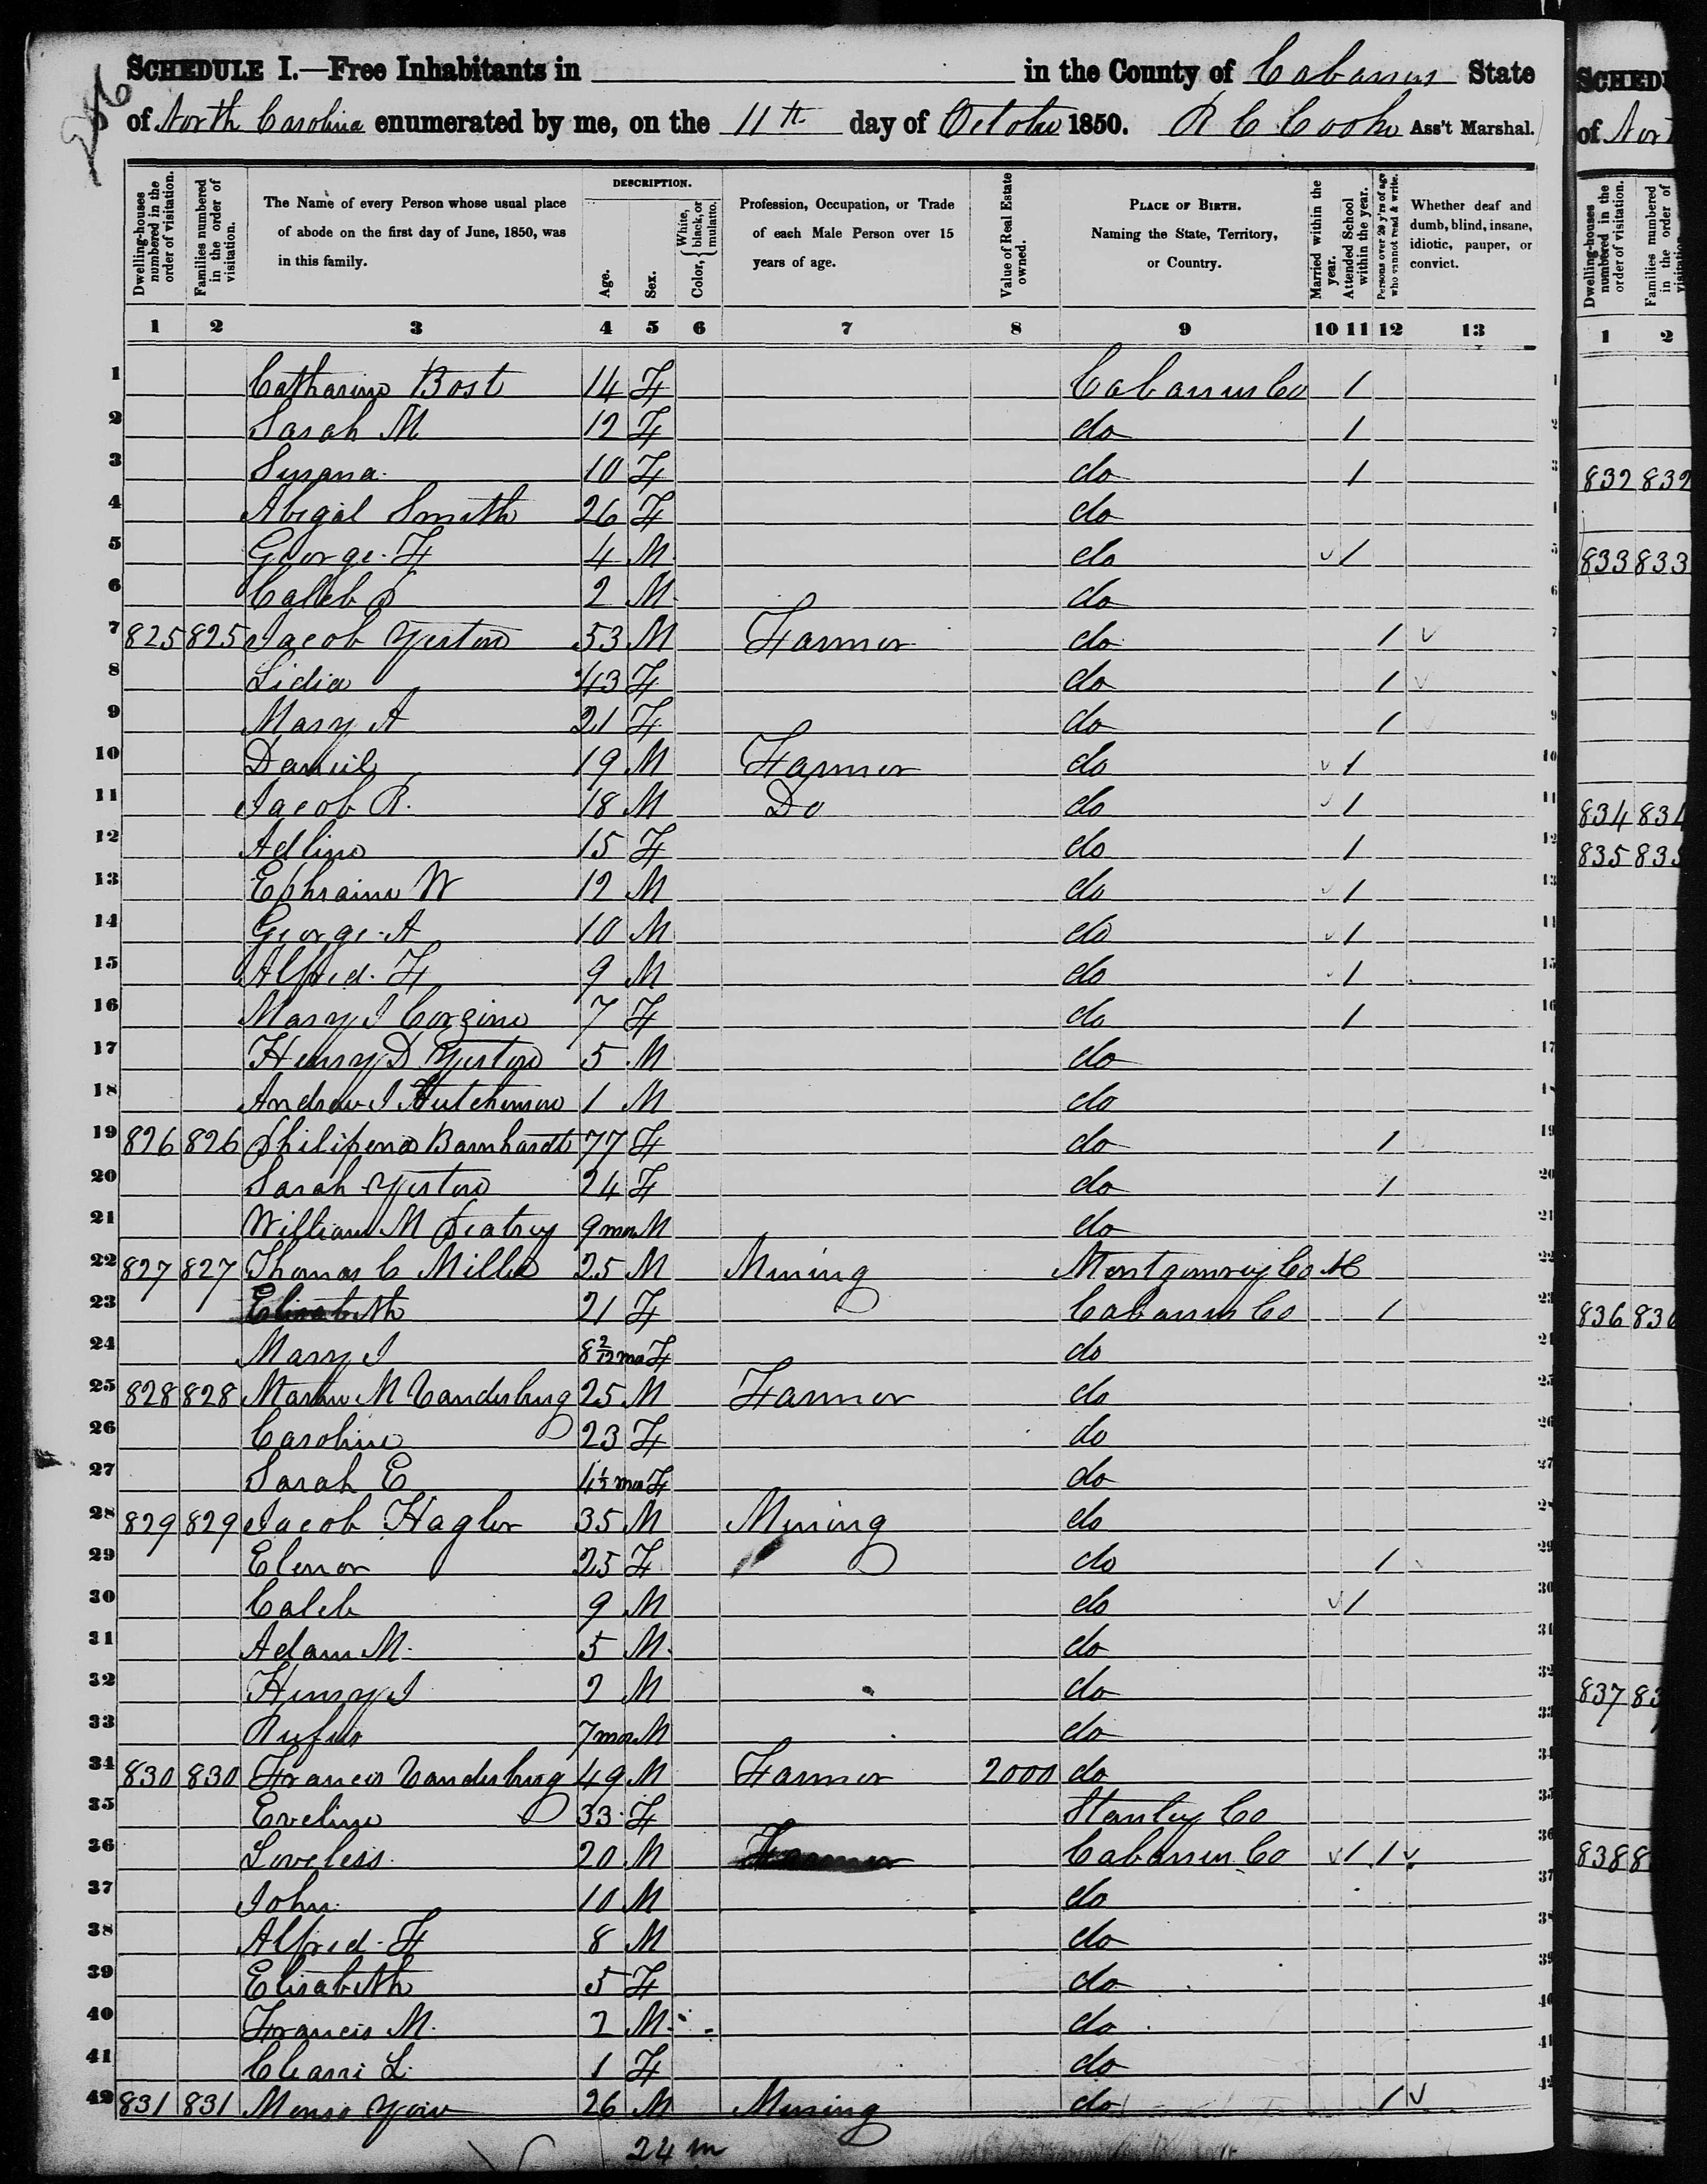 SCHEDULE I.—Free Inhabitants in in the County of Cabarrus State
of North Carolina enumerated by me, on the 11th day of October 1850. R C Cooke Ass't Marshal.
Dwelling-houses numbered in the order of visitation.
Families numbered in the order of visitation.
The Name of every Person whose usual place of abode on the first day of June, 1850, was in this family.
DESCRIPTION.
Age.
Sex.
Color, White, black, or mulatto.
Profession, Occupation, or Trade of each Male Person over 15 years of age.
Value of Real Estate owned.
PLACE OF BIRTH. Naming the State, Territory, or Country.
Married within the year.
Attended School within the year.
Persons over 20 y'rs of age who cannot read & write.
Whether deaf and dumb, blind, insane, idiotic, pauper, or convict.
1 2 3 4 5 6 7 8 9 10 11 12 13
1 Catharine Bost 14 F Cabarrus Co 1
2 Sarah M 12 F do 1
3 Susana 10 F do 1
4 Abigal Smith 26 F do
5 George F 4 M do 1
6 Caleb 2 M do
7 825 825 Jacob 53 M Farmer do 1
8 Lidia 43 F do 1
9 Mary A 21 F do 1
10 Daniel 19 M Farmer do 1
11 Jacob R. 18 M Do do 1
12 Adline 15 F do 1
13 Ephraim W 12 M do 1
14 George A 10 M do 1
15 Alfred F 9 M do 1
16 Mary J Corzine 7 F do 1
17 Henry D 5 M do
18 Andrew J Hutchinson 1 M do
19 826 826 Philipena Barnhardt 77 F do 1
20 Sarah 24 F do 1
21 William M 9 mo M do
22 827 827 Thomas C Mills 25 M Mining Montgomery Co NC
23 Elisabeth 21 F Cabarrus Co 1
24 Mary J 8 2/12 mo F do
25 828 828 M Vanderburg 25 M Farmer do
26 Caroline 23 F do
27 Sarah E 4 1/2 mo F do
28 829 829 Jacob Hagler 35 M Mining do
29 Elenor 25 F do 1
30 Caleb 9 M do 1
31 Adam M. 5 M do
32 Henry J 2 M do
33 Rufus 7 mo M do
34 830 830 Francis Vanderburg 49 M Farmer 2000 do
35 Eveline 33 F Stanley Co
36 Loveless 20 M Farmer Cabarrus Co 1 1
37 John 10 M do
38 Alfred F 8 M do
39 Elisabeth 5 F do
40 Francis M. 2 M do
41 L. 1 F do
42 831 831 26 M Mining do 1
24 m
SCHED
of Nort
Dwelling-houses numbered in the order of visitation.
Families numbered in the order of visitation
1 2
832 832
833 833
834 834
835 835
836 836
837 83
838 8